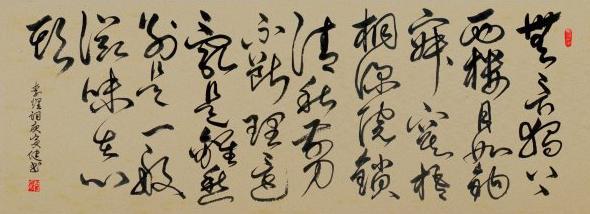 無言獨上
西樓月如鉤
寂寞梧
桐深院鎖
清秋剪
不斷理還
亂是離愁
別是一般
滋味在心
頭
李煜詞庚寅健書